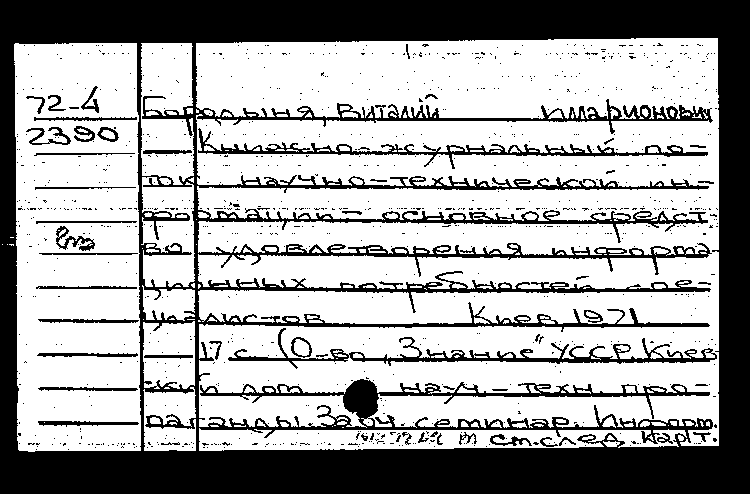 72-4 Бородыня, Виталий Иларионович
2390 Книжно-журнальный по-
ток научно-технической ин-
формации – основное средст-
во удовлетворения информа-
ционных потребностей спе-
циалистов Киев, 1971
17 с. (О-во „Знание“ УССР. Киев
ский дом науч.-техн. про-
паганды. Заоч. семинар. Информ.
см. след. карт.